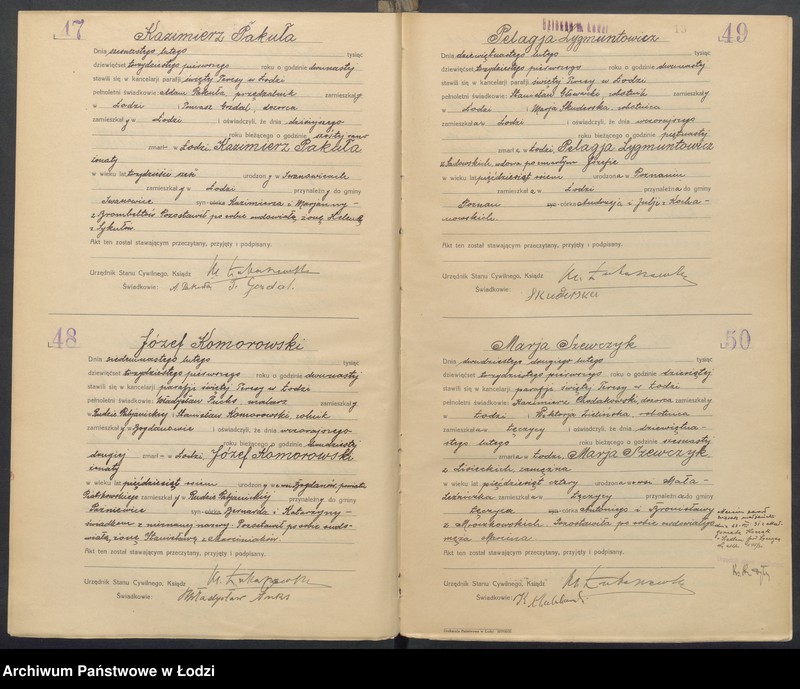 47
Kazimierz Pakuła
Dnia szesnastego lutego tysiąc
dziewięćset trzydziestego pierwszego roku o godzinie dwunastej
stawili się w kancelarji parafji świętej Teresy w Łodzi
pełnoletni świadkowie: Adam Pakuła, przędzalnik zamieszkały
w Łodzi i Tomasz dozorca
zamieszkały w Łodzi i oświadczyli, że dnia dzisiejszego
roku bieżącego o godzinie szóstej rano
zmarł w Łodzi Kazimierz Pakuła
żonaty
w wieku lat trzydzieści sześć urodzony w Iwanowicach
zamieszkały w Łodzi przynależny do gminy
Iwanowice syn Kazimierza i Marjanny
Pozostawił po sobie owdowiałą żonę Helenę
z Sykułów.
Akt ten został stawającym przeczytany, przyjęty i podpisany.
Urzędnik Stanu Cywilnego, Ksiądz
Świadkowie: A. Pakuła
48
Józef Komorowski
Dnia siedemnastego lutego tysiąc
dziewięćset trzydziestego pierwszego roku o godzinie dwunastej
stawili się w kancelarji parafji świętej Teresy w Łodzi
pełnoletni świadkowie: Władysław Fuks, malarz zamieszkały
w Rudzie Pabjanickiej i Stanisław Komorowski, rolnik
zamieszkały w Bogdanowie i oświadczyli, że dnia wczorajszego
roku bieżącego o godzinie dwudziestej
drugiej zmarł w Łodzi Józef Komorowski
żonaty
w wieku lat pięćdziesiąt siedem urodzony we wsi Bogdanów, powiatu
Piotrkowskiego zamieszkały w Rudzie Pabjanickiej przynależny do gminy
syn Bernarda i Katarzyny
świadkom z nieznanej nazwy. Pozostawił po sobie owdo-
wiałą żonę Stanisławę z Marciniaków.
Akt ten został stawającym przeczytany, przyjęty i podpisany.
Urzędnik Stanu Cywilnego, Ksiądz
Świadkowie: Władysław Fuks
49
Pelagja Zygmuntowicz
Dnia dziewiętnastego lutego tysiąc
dziewięćset trzydziestego pierwszego roku o godzinie dwunastej
stawili się w kancelarji parafji świętej Teresy w Łodzi
pełnoletni świadkowie: Stanisław Głowacki, robotnik zamieszkały
w Łodzi i Marja Skuderska, robotnica
zamieszkała w Łodzi i oświadczyli, że dnia wczorajszego
roku bieżącego o godzinie piętnastej
zmarła w Łodzi, Pelagja Zygmuntowicz
z Sadowskich, wdowa po zmarłym Józefie
w wieku lat pięćdziesiąt siedem urodzona w Poznaniu
zamieszkała w Łodzi przynależna do gminy
Poznań córka Andrzeja i Julji z Kocha-
nowskich.
Akt ten został stawającym przeczytany, przyjęty i podpisany.
Urzędnik Stanu Cywilnego, Ksiądz
Świadkowie: Skuderska
50
Marja Szewczyk
Dnia dwudziestego drugiego lutego tysiąc
dziewięćset trzydziestego pierwszego roku o godzinie dziesiątej
stawili się w kancelarji parafji świętej Teresy w Łodzi
pełnoletni świadkowie: Kazimierz Chodakowski, dozorca zamieszkały
w Łodzi i Wiktorja Zielińska, robotnica
zamieszkała w Łęczycy i oświadczyli, że dnia dziewiętna-
stego lutego roku bieżącego o godzinie szesnastej
zmarła w Łodzi Marja Szewczyk
z Lisieckich zamężna
w wieku lat pięćdziesiąt cztery urodzona we wsi
zamieszkała w Łęczycy przynależna do gminy
Łęczyca córka Antoniego i Bronisławy
z Mroszkowskich. Pozostawiła po sobie owdowiałego
męża Marcina.
Akt ten został stawającym przeczytany, przyjęty i podpisany.
Urzędnik Stanu Cywilnego, Ksiądz
Świadkowie:
Archiwum Państwowe w Łodzi